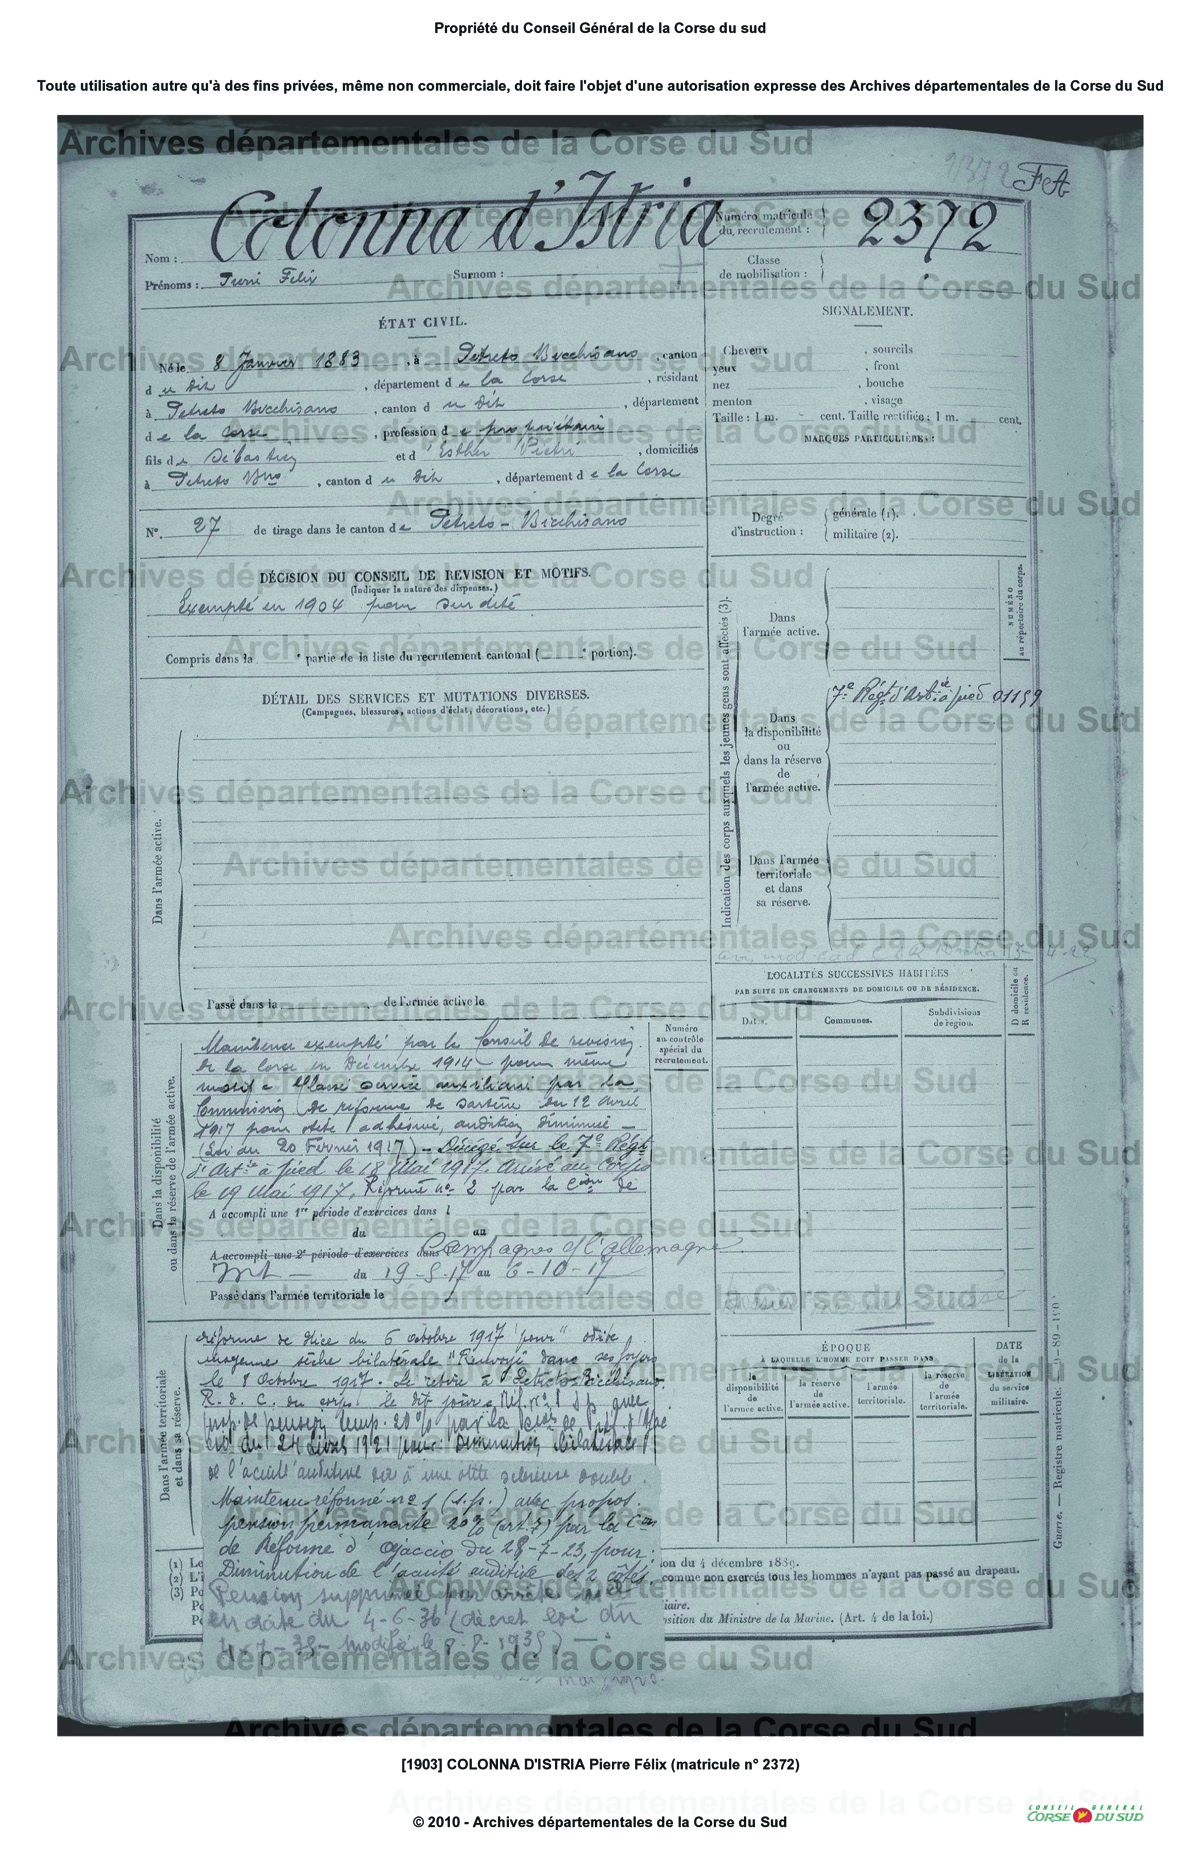 Propriété du Conseil Général de la Corse du sud
Toute utilisation autre qu'à des fins privées, même non commerciale, doit faire l'objet d'une autorisation expresse des Archives départementales de la Corse du Sud
Archives départementales de la Corse du Sud
Nom : Colonna d'Istria
Prénoms : Pierre Félix
Surnom :
Numéro matricule du recrutement : 2372
Classe de mobilisation :
ÉTAT CIVIL.
Né le 8 Janvier 1883, à Petreto Bicchisano, canton
d u dit, département d e la Corse, résidant
à Petreto Bicchisano, canton d u dit, département
d e la Corse, profession d e propriétaire
fils de Sébastien et d' Esther Pietri, domiciliés
à Petreto Bno, canton d u dit, département d e la Corse
N° 27 de tirage dans le canton de Petreto-Bicchisano
DÉCISION DU CONSEIL DE REVISION ET MOTIFS.
(Indiquer la nature des dispenses.)
Exempté en 1904 pour surdité
Compris dans la e partie de la liste du recrutement cantonal ( e portion).
DÉTAIL DES SERVICES ET MUTATIONS DIVERSES.
(Campagnes, blessures, actions d'éclat, décorations, etc.)
Dans l'armée active.
Passé dans la de l'armée active le
SIGNALEMENT.
Cheveux , sourcils
yeux , front
nez , bouche
menton , visage
Taille : 1 m. cent. Taille rectifiée : 1 m. cent.
MARQUES PARTICULIÈRES :
Degré d'instruction :
générale (1).
militaire (2).
Indication des corps auxquels les jeunes gens sont affectés (3).
NUMÉRO au répertoire du corps.
Dans l'armée active.
Dans la disponibilité ou dans la réserve de l'armée active.
7e Régt d'Artie à pied 01159
Dans l'armée territoriale et dans sa réserve.
LOCALITÉS SUCCESSIVES HABITÉES
PAR SUITE DE CHANGEMENTS DE DOMICILE OU DE RÉSIDENCE.
Dates.
Communes.
Subdivisions de région.
D domicile ou R résidence.
Dans la disponibilité ou dans la réserve de l'armée active.
Numéro au contrôle spécial du recrutement.
Maintenu exempté par le Conseil de revision
de la Corse en Décembre 1914 pour même
motif. Classé service auxiliaire par la
Commission de réforme de Sartène du 12 avril
1917 pour otite adhésive, audition diminuée —
(Loi du 20 Février 1917) — Dirigé sur le 7e Régt
d'Artie à pied le 18 Mai 1917. Arrivé au Corps
le 19 Mai 1917. Réformé no 2 par la Cion de
A accompli une 1re période d'exercices dans l
du au
A accompli une 2e période d'exercices dans l
Campagnes c/ l'allemagne
Int — du 19-5-17 au 6-10-17
Passé dans l'armée territoriale le
Dans l'armée territoriale et dans sa réserve.
réforme de Nice du 6 octobre 1917 "pour" otite
moyenne sèche bilatérale "Renvoyé dans ses foyers
le 8 Octobre 1917. Se retire à Petreto Bicchisano.
R. d. C. du corps le dit jour.
du 24
1921 pour: diminution bilatérale
de l'acuité auditive due à une otite scléreuse double.
Maintenu réformé no 1 (s.p.) avec propos.
pension permanente 20% (art. 7) par la Con
de Réforme d'Ajaccio du 28-7-23, pour:
Diminution de l'acuité auditive des 2 côtés.
Pension supprimée par arrêté
en date du 4-6-36 (décret loi du
modifié le 8-8-1935) —
ÉPOQUE
À LAQUELLE L'HOMME DOIT PASSER DANS
la disponibilité de l'armée active.
la réserve de l'armée active.
l'armée territoriale.
la réserve de l'armée territoriale.
DATE de la LIBÉRATION du service militaire.
Guerre. — Registre matricule.
(1) Le
(2) L'i
(3) Po
ion du 4 décembre 1889.
comme non exercés tous les hommes n'ayant pas passé au drapeau.
iaire.
osition du Ministre de la Marine. (Art. 4 de la loi.)
[1903] COLONNA D'ISTRIA Pierre Félix (matricule n° 2372)
© 2010 - Archives départementales de la Corse du Sud
CONSEIL GÉNÉRAL
CORSE DU SUD